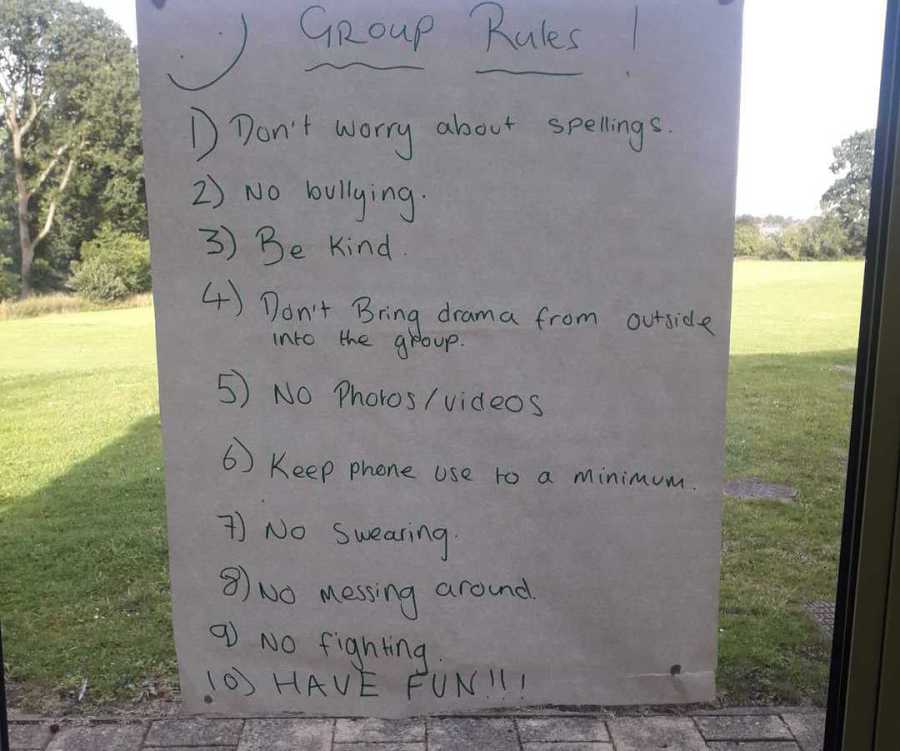 Group Rules !
1) Don't worry about spellings.
2) No bullying.
3) Be kind.
4) Don't Bring drama from outside
into the group.
5) No Photos/videos
6) Keep phone use to a minimum.
7) No swearing.
8) No messing around.
9) No fighting.
10) HAVE FUN!!!